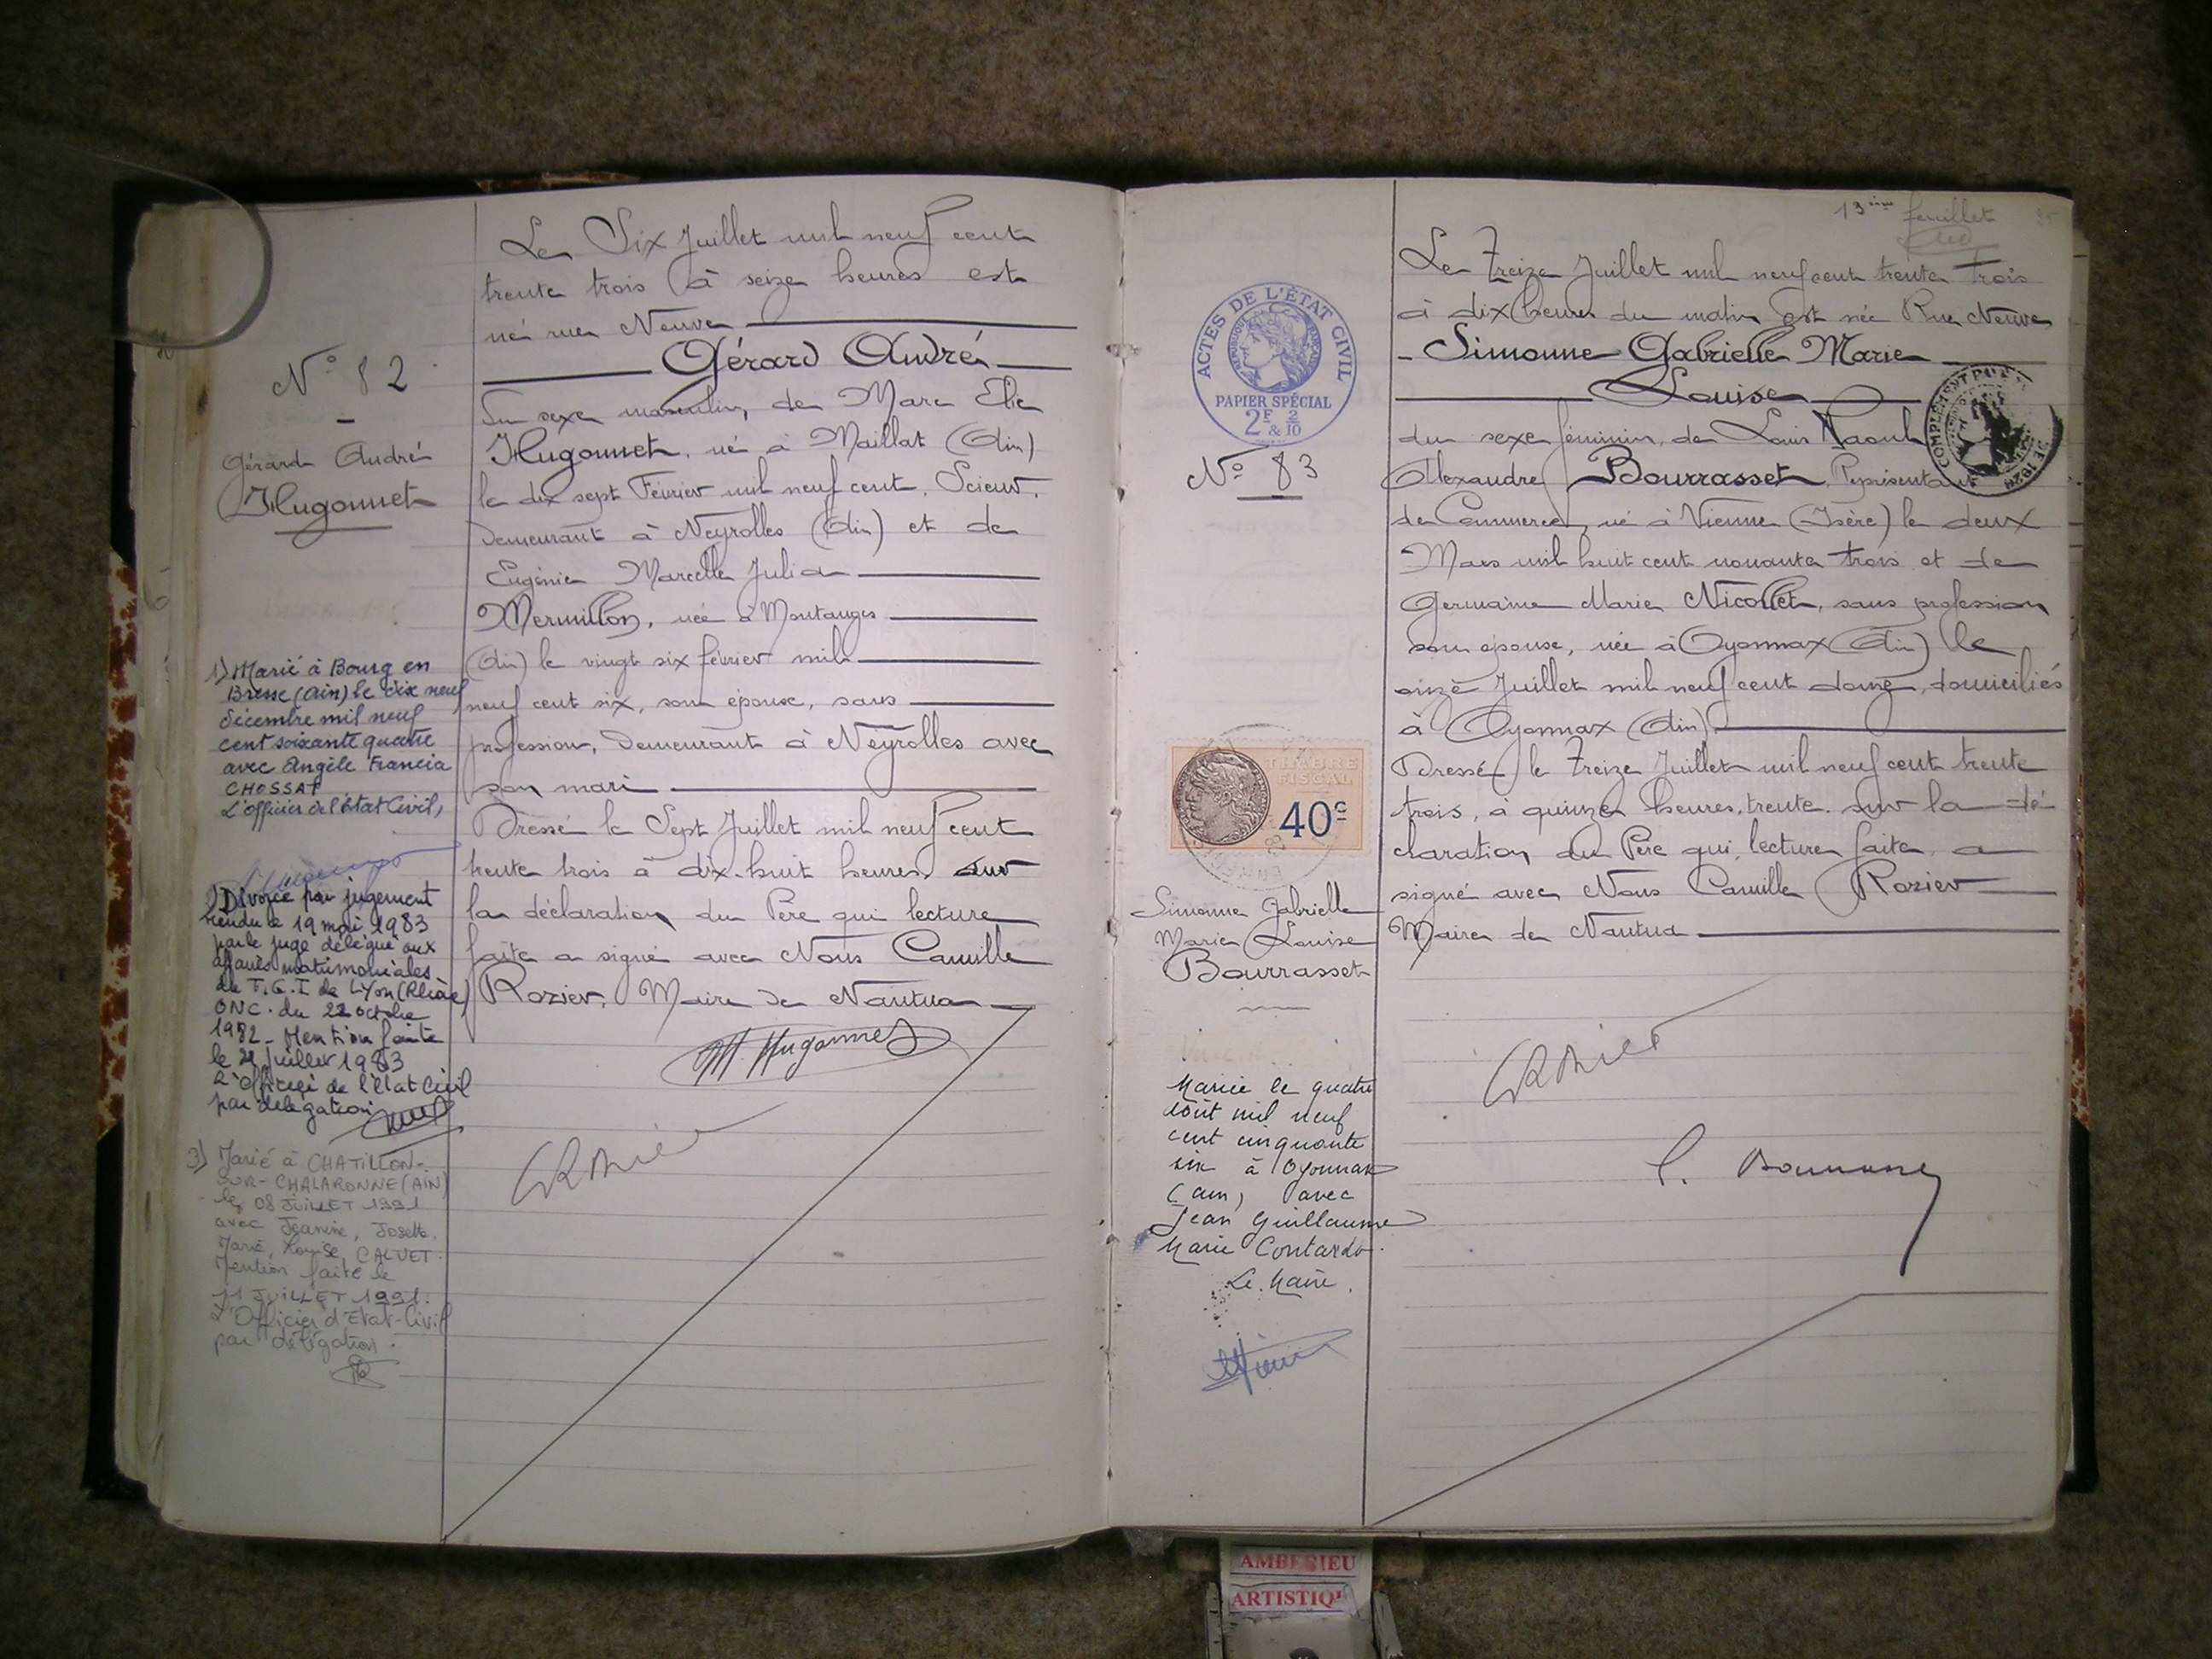 N° 82
Gérard André
Hugonnet
1) Marié à Bourg en
Bresse (Ain) le dix neuf
décembre mil neuf
cent soixante quatre
avec Angèle Francia
CHOSSAT
L'officier de l'état Civil,
2) Divorcé par jugement
rendu le 19 mai 1983
par le juge délégué aux
affaires matrimoniales
du T.G.I de Lyon (Rhône)
ONC. du 22 octobre
1982 - Mention faite
le 21 Juillet 1983
L'officier de l'état Civil
par délégation
3) Marié à CHATILLON-
SUR-CHALARONNE (AIN)
le 08 JUILLET 1991
avec Jeanine, Josette,
Marie, Louise, CALVET.
Mention faite le
11 JUILLET 1991.
L'Officier d'Etat-Civil
par délégation.
Le Six Juillet mil neuf cent
trente trois à seize heures est
né rue Neuve
Gérard André
Du sexe masculin, de Marc Elie
Hugonnet, né à Maillat (Ain)
le dix sept Février mil neuf cent, Scieur,
Demeurant à Neyrolles (Ain) et de
Eugénie Marcelle Julia
Mermillon, née à Montanges
(Ain) le vingt six février mil
neuf cent six, son épouse, sans
profession, Demeurant à Neyrolles avec
son mari
Dressé le Sept Juillet mil neuf cent
trente trois à dix-huit heures, sur
la déclaration du Père qui lecture
faite a signé avec Nous Camille
Rozier, Maire de Nantua
M. Hugonnet
CRozier
ACTES DE L'ÉTAT CIVIL
RÉPUBLIQUE FRANÇAISE
PAPIER SPÉCIAL
2F & 2/10
N° 83
TIMBRE
FISCAL
40c
Simonne Gabrielle
Marie Louise
Bourrasset
Mariée le quatre
août mil neuf
cent cinquante
six à Oyonnax
(Ain) avec
Jean Guillaume
Marie Contardo.
Le Maire,
13ème feuillet
Le Treize Juillet mil neuf cent trente trois
à dix heures du matin est née Rue Neuve
Simonne Gabrielle Marie
Louise
du sexe féminin, de Louis Raoul
Alexandre Bourrasset, Représentant
de Commerce, né à Vienne (Isère) le deux
Mars mil huit cent nonante trois et de
Germaine Marie Nicollet, sans profession
son épouse, née à Oyonnax (Ain) le
onze Juillet mil neuf cent douze, domiciliés
à Oyonnax (Ain)
Dressé le Treize Juillet mil neuf cent trente
trois, à quinze heures, trente. sur la dé
claration du Père qui, lecture faite, a
signé avec Nous Camille Rozier
Maire de Nantua
COMPLÉMENT
CRozier
AMBERIEU
ARTISTIQU